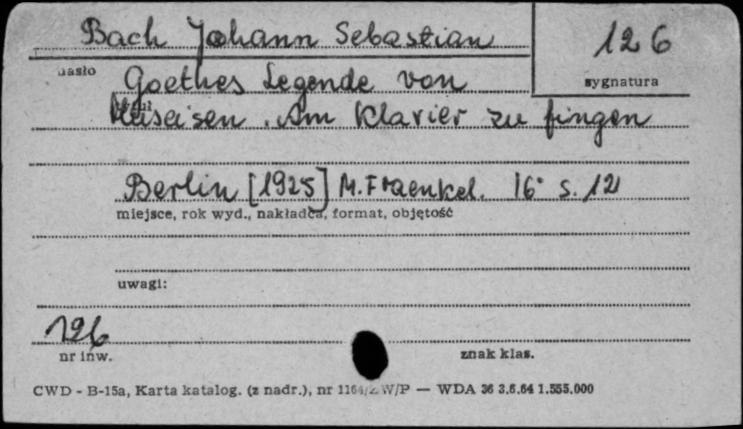 Bach Johann Sebastian
126
hasło
sygnatura
Goethes Legende von
tytuł
Hufeisen. Am Klavier zu fingen
Berlin [1925] M. Fraenkel. 16° s. 12
miejsce, rok wyd., nakładca, format, objętość
uwagi:
126
nr inw.
znak klas.
CWD - B-15a, Karta katalog. (z nadr.), nr 1164/Z W/P — WDA 36 3.6.64 1.555.000